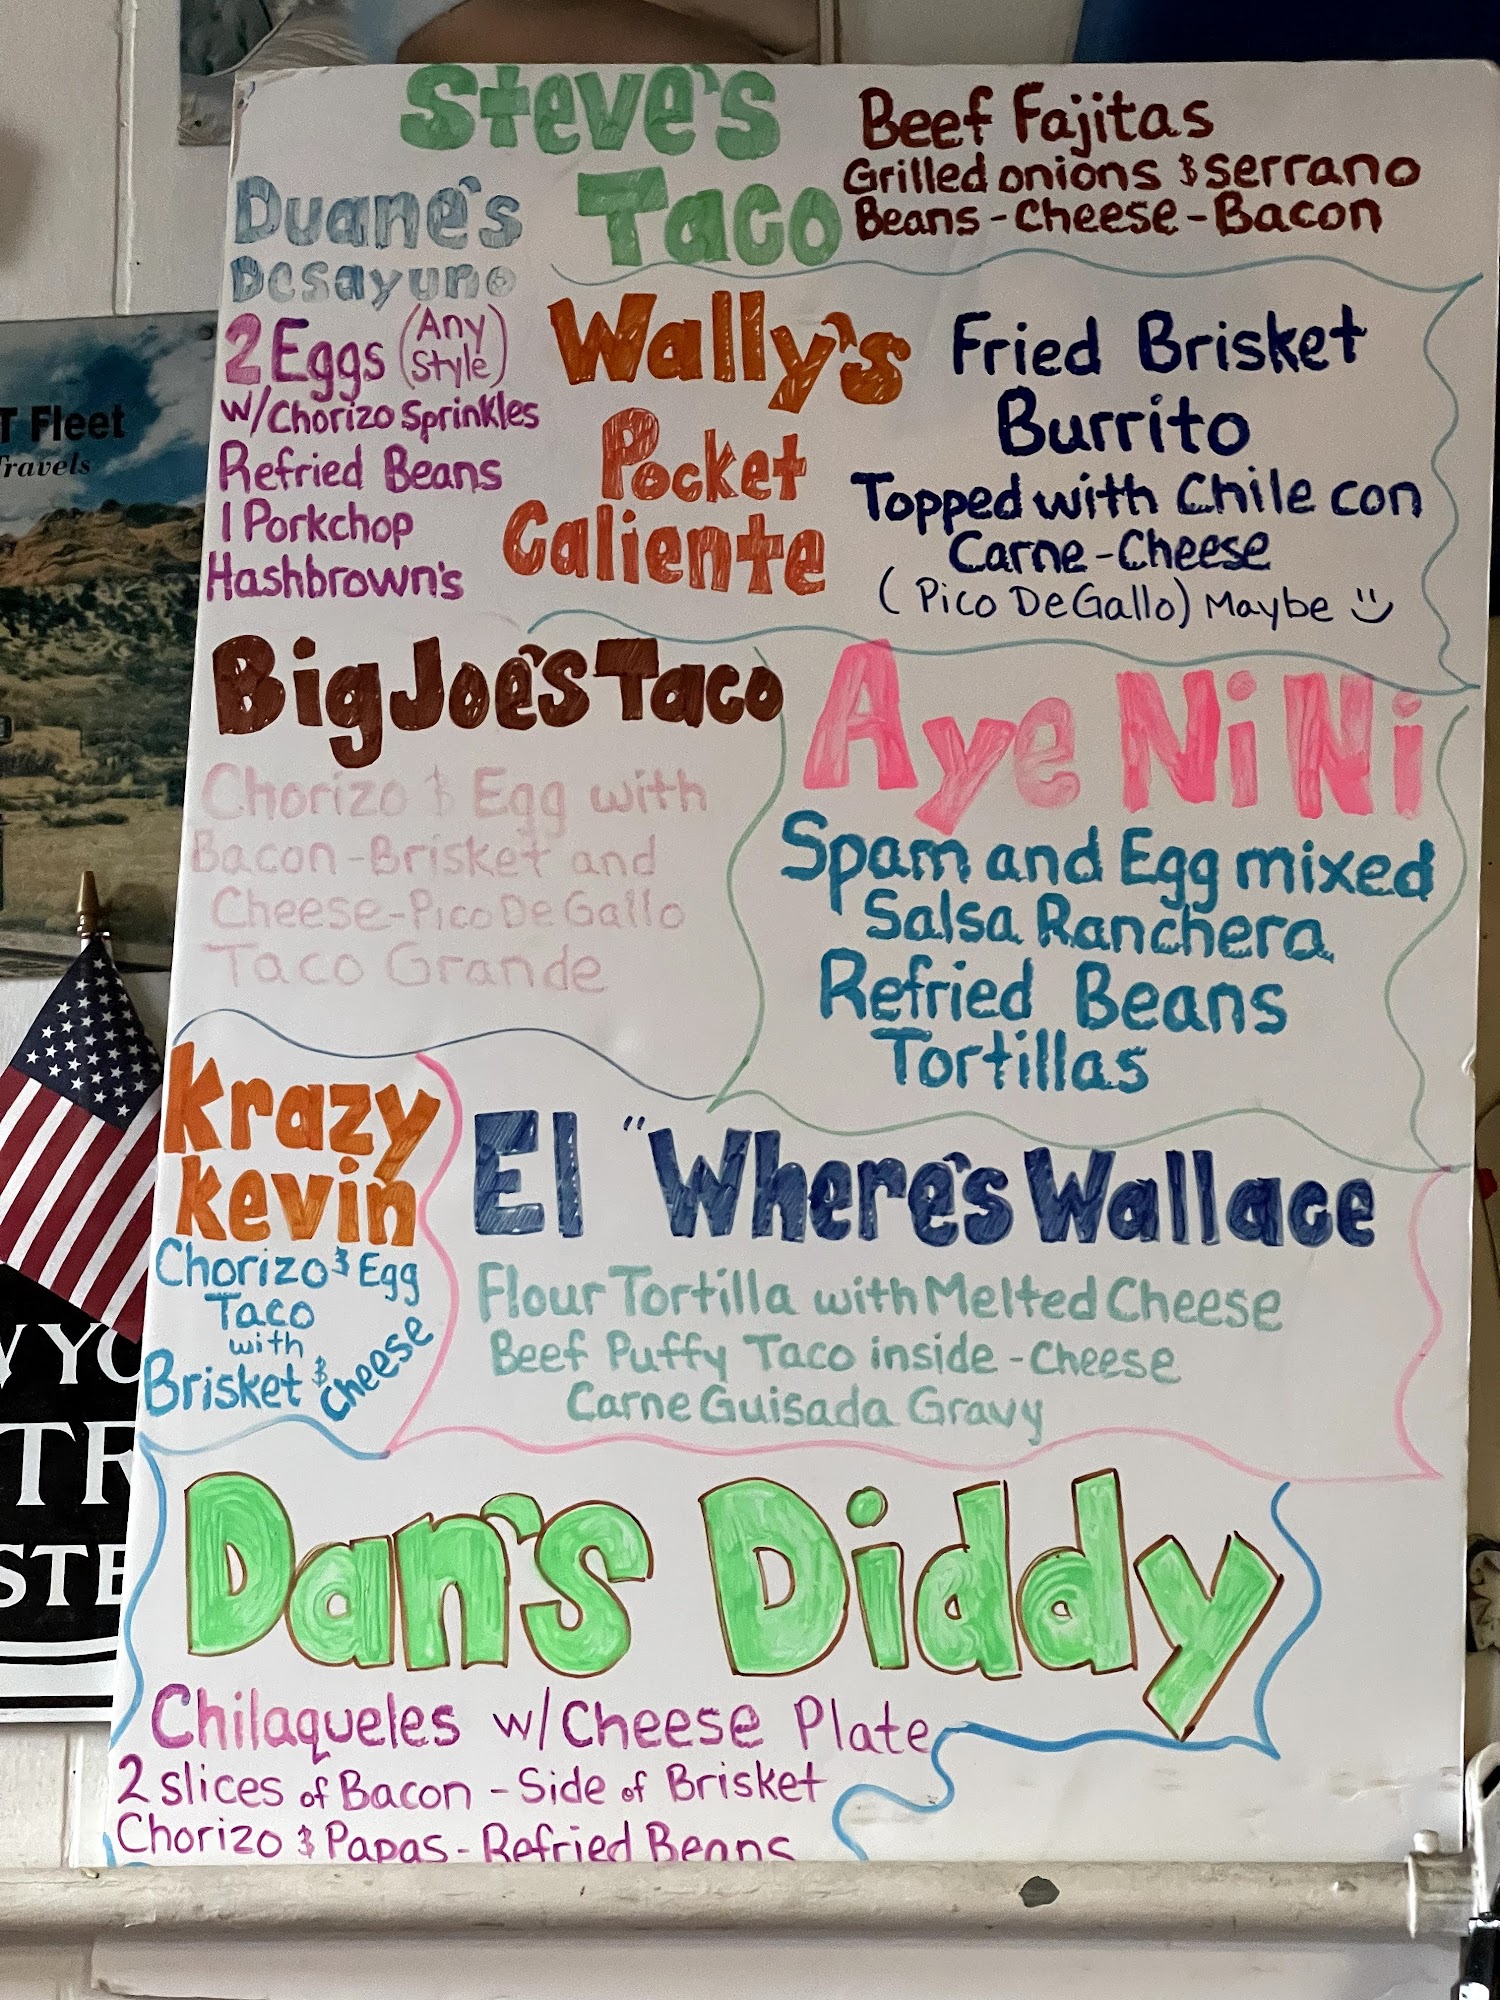 Steve's
Taco
Beef Fajitas
Grilled onions & serrano
Beans - Cheese - Bacon
Duane's
Desayuno
2 Eggs (Any Style)
w/Chorizo Sprinkles
Refried Beans
1 Porkchop
Hashbrown's
Wally's
Pocket
Caliente
Fried Brisket
Burrito
Topped with Chile con
Carne - Cheese
(Pico De Gallo) Maybe
Big Joe's Taco
Chorizo & Egg with
Bacon - Brisket and
Cheese - Pico De Gallo
Taco Grande
Aye Ni Ni
Spam and Egg mixed
Salsa Ranchera
Refried Beans
Tortillas
Krazy
Kevin
Chorizo & Egg
Taco
with
Brisket & Cheese
El "Where's Wallace
Flour Tortilla with Melted Cheese
Beef Puffy Taco inside - Cheese
Carne Guisada Gravy
Dan's Diddy
Chilaqueles w/Cheese Plate
2 slices of Bacon - Side of Brisket
Chorizo & Papas - Refried Beans
T Fleet
Travels
YO
TR
STE